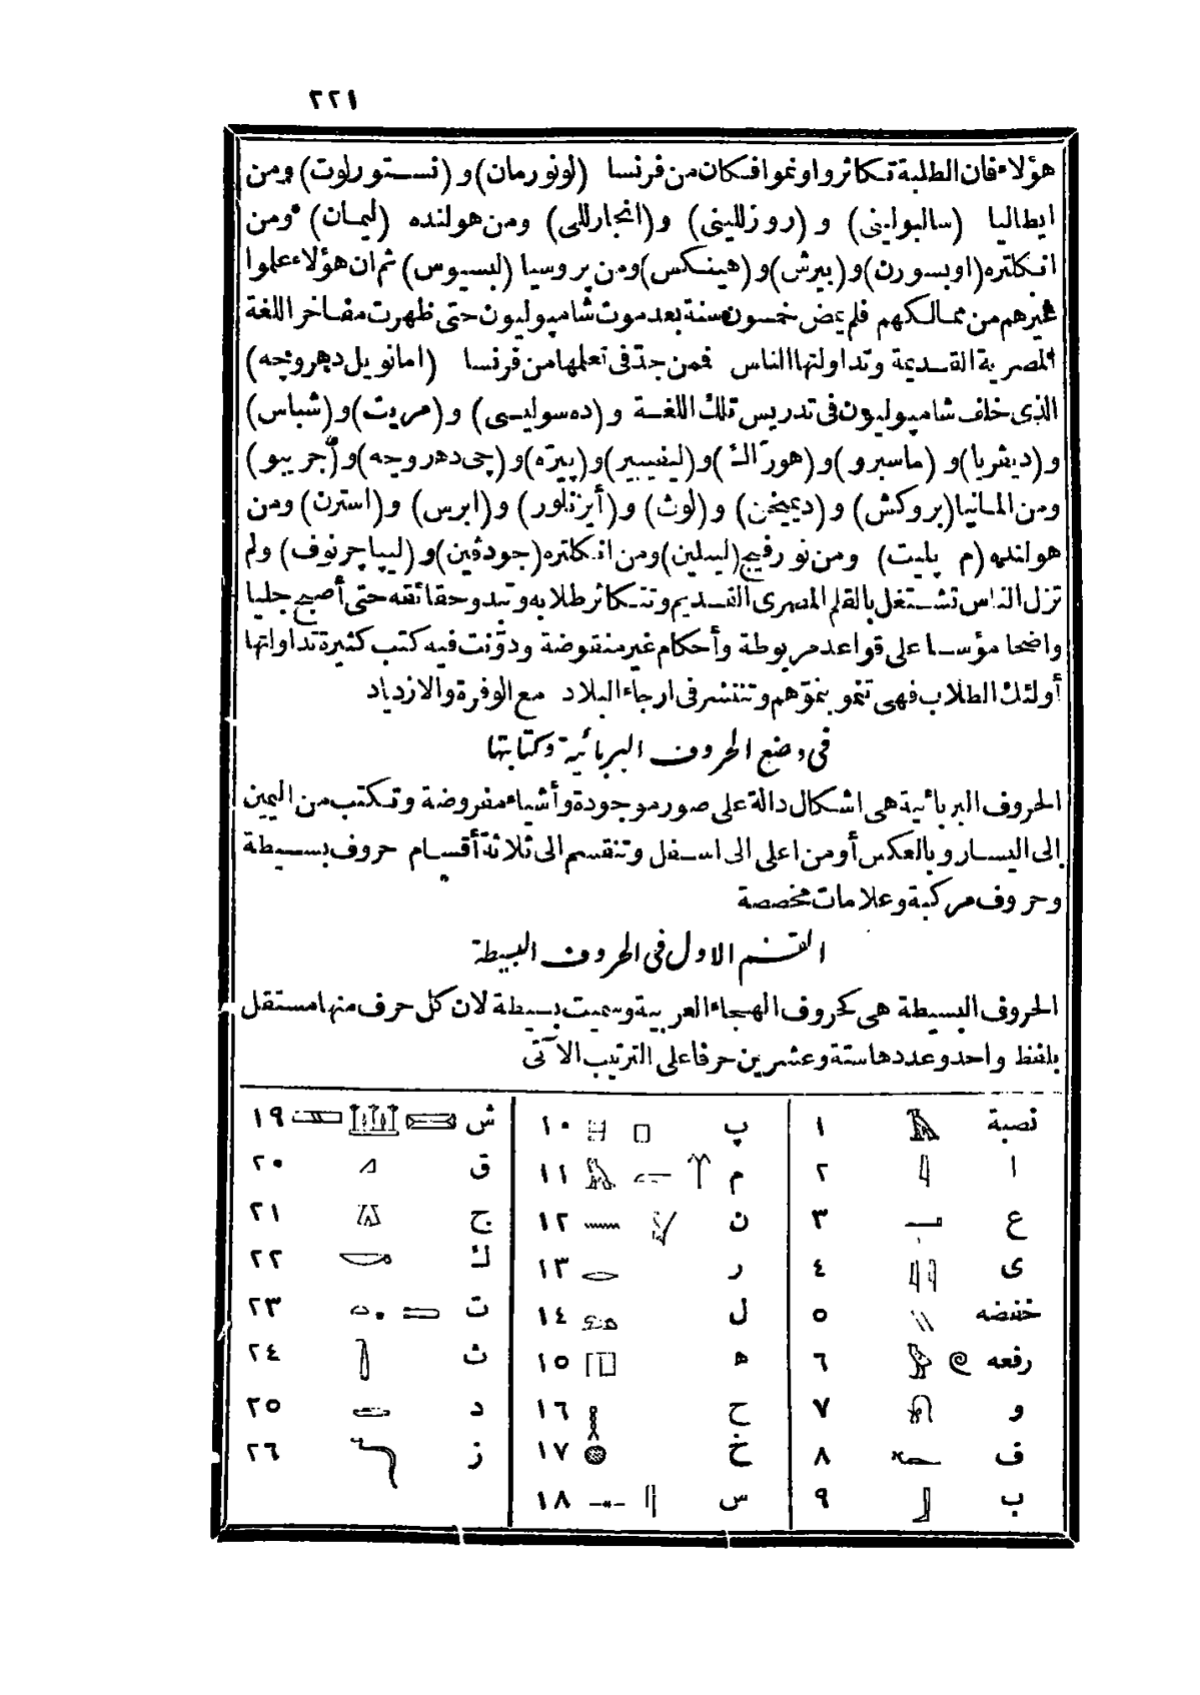 ٢٢١
هؤلاء فان الطلبة تكاثروا ونموا فكان من فرنسا (لونورمان) و (نستورلوت) ومن
ايطاليا (سالبوليني) و (روزلليني) و (انجارللى) ومن هولنده (ليمان) ومن
انكلتره (اوبسورن) و (بيرش) و (هينكس) ومن بروسيا (لبسيوس) ثم ان هؤلاء علموا
غيرهم من ممالكهم فلم يمض خمسون سنة بعد موت شامپوليون حتى ظهرت مفاخر اللغة
المصرية القديمة وتداولتها الناس فمن جدّ فى تعلمها من فرنسا (امانويل دهروجه)
الذى خلف شامپوليون فى تدريس تلك اللغة و (ده سوليسى) و (مريت) و (شباس)
و (ديڤريا) و (ماسبرو) و (هورّاك) و (ليفيبير) و (پيرّه) و (چى دهروجه) و (جريبو)
ومن المانيا (بروكش) و (ديميخن) و (لوث) و (أيزنلور) و (ابرس) و (استرن) ومن
هولنده (م پليت) ومن نورفيج (ليبلين) ومن انكلتره (جودڤين) و (ليپاچرنوف) ولم
تزل الناس تشتغل بالقلم المصرى القديم وتتكاثر طلابه وتبدو حقائقه حتى أصبح جليا
واضحا مؤسسا على قواعد مربوطة وأحكام غير منقوضة ودوّنت فيه كتب كثيرة تداولتها
أولئك الطلاب فهى تنمو بنموّهم وتنتشر فى ارجاء البلاد مع الوفرة والازدياد
فى وضع الحروف البربائية وكتابتها
الحروف البربائية هى اشكال دالة على صور موجودة وأشياء مفروضة وتكتب من اليمين
إلى اليسار وبالعكس أو من اعلى الى اسفل وتنقسم الى ثلاثة أقسام حروف بسيطة
وحروف مركبة وعلامات مخصصة
القسم الاول فى الحروف البسيطة
الحروف البسيطة هى كحروف الهجاء العربية وسميت بسيطة لان كل حرف منها مستقل
بلفظ واحد وعددها ستة وعشرين حرفا على الترتيب الآتى
نصبة ١
ا ٢
ع ٣
ى ٤
خفضه ٥
رفعه ٦
و ٧
ف ٨
ب ٩
پ ١٠
م ١١
ن ١٢
ر ١٣
ل ١٤
ه ١٥
ح ١٦
خ ١٧
س ١٨
ش ١٩
ق ٢٠
ج ٢١
ك ٢٢
ت ٢٣
ث ٢٤
د ٢٥
ز ٢٦